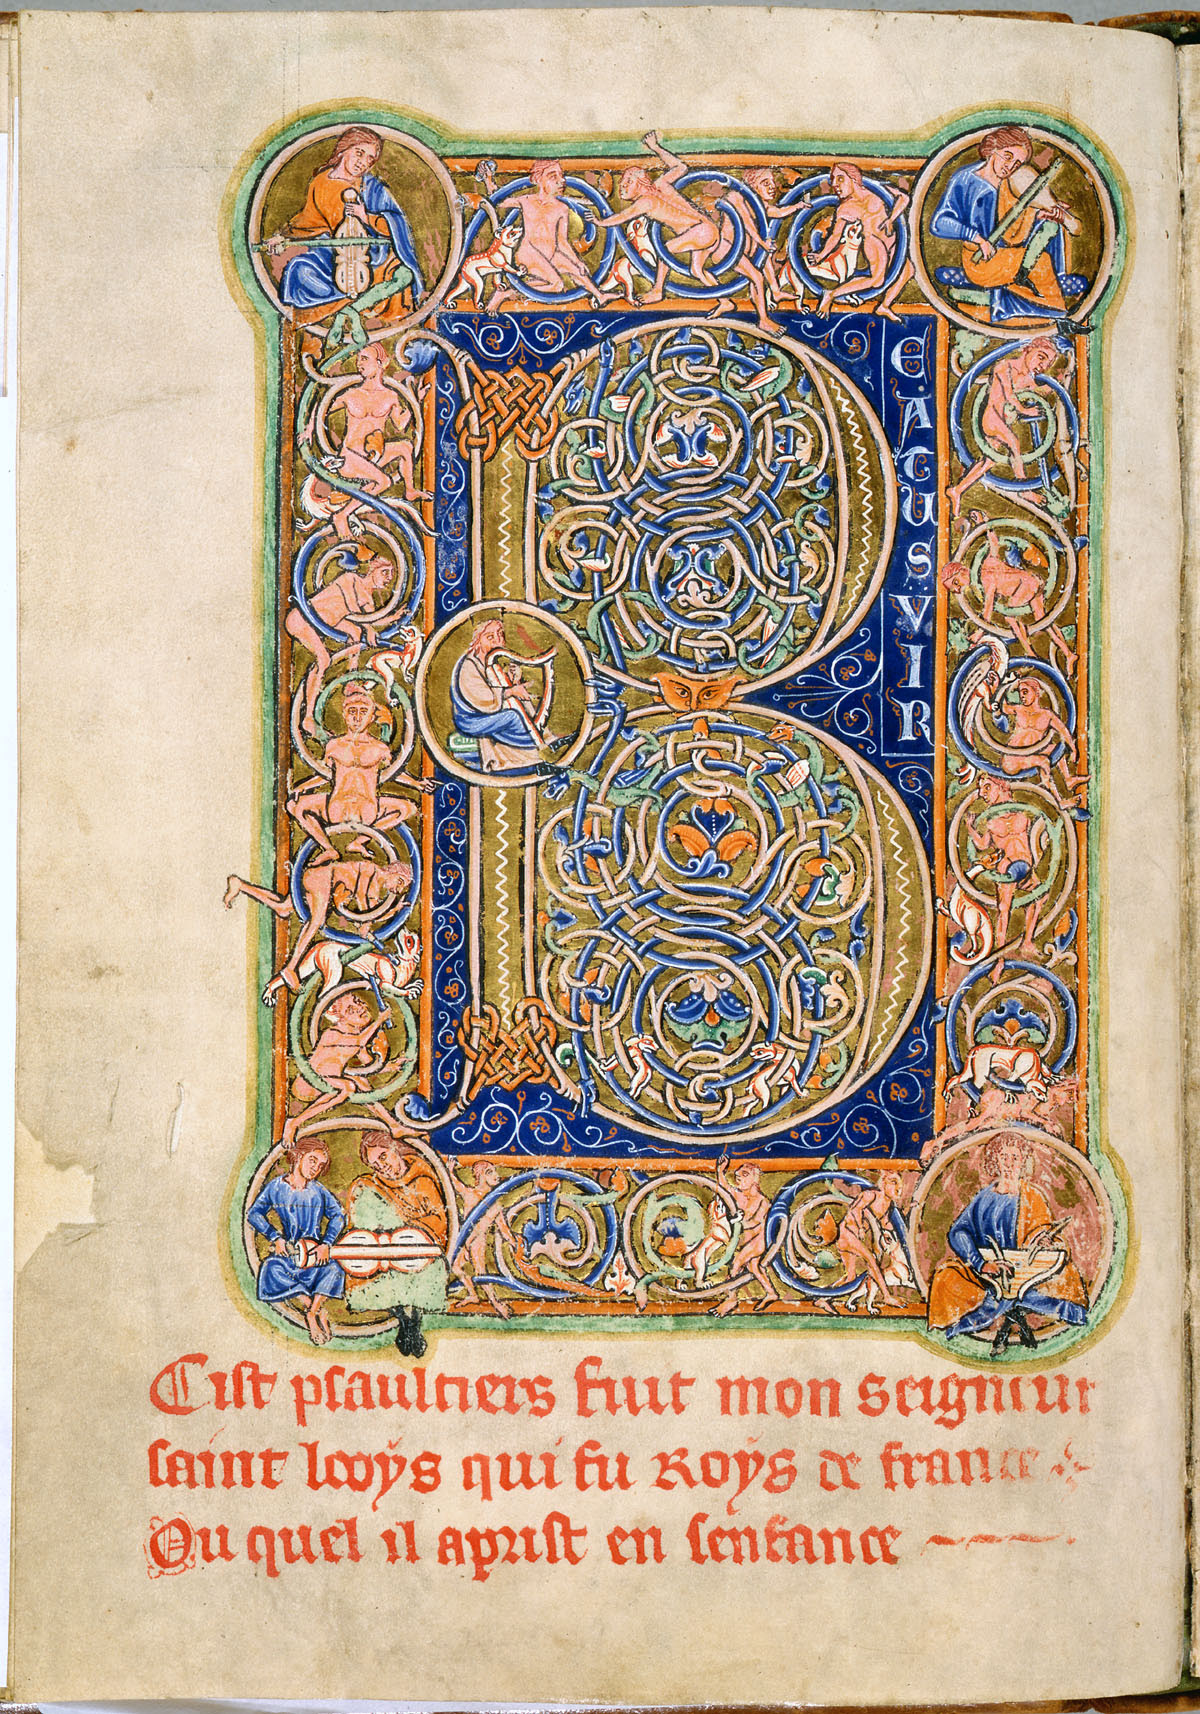 B
EATUS
VIR
Cist psaultiers fuit mon seigneur
saint looys qui fu Roys de france
Ou quel il aprist en senfance